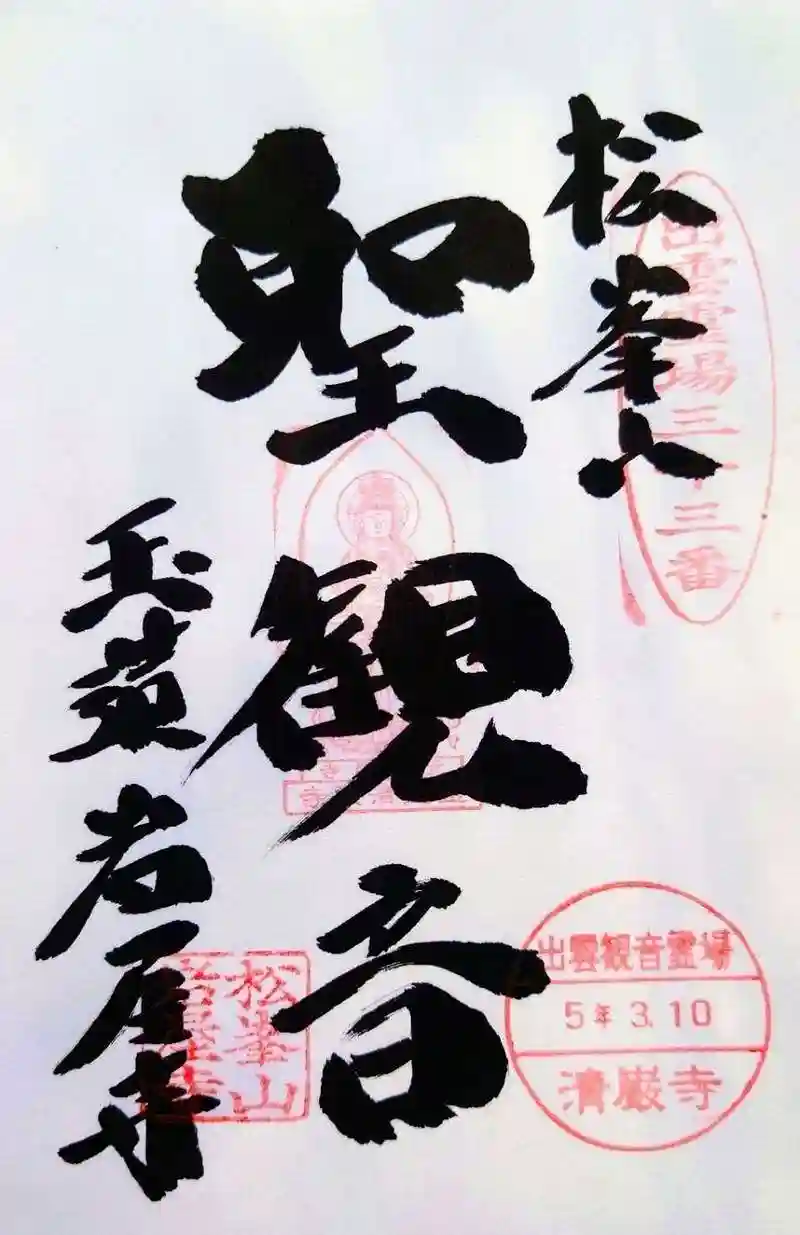 松峯山
出雲霊場三十三番
聖観音
玉
岩屋寺
松峯山
岩屋寺
出雲観音霊場
5年3.10
清巌寺